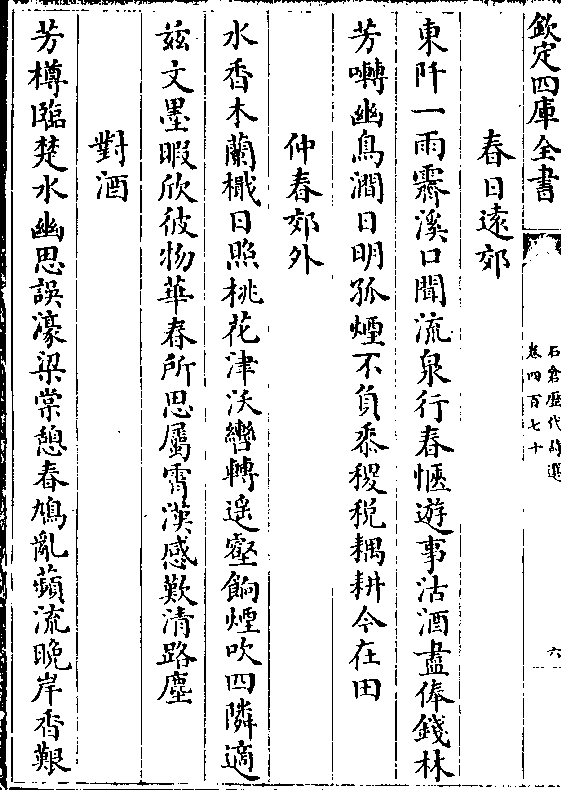 欽定四庫全書
石倉歷代詩選
卷四百七十
六
春日遠郊
東阡一雨霽溪口聞流泉行春愜遊事沽酒盡俸錢林
芳囀幽鳥澗日明孤煙不負黍稷税耦耕今在田
仲春郊外
水香木蘭檝日照桃花津沃巒轉遥壑餉煙吹四隣適
茲文墨暇欣彼物華春所思屬霄漢感歎清路塵
對酒
芳樽臨楚水幽思誤濠梁棠憩春鳩亂蘋流晚岸香艱